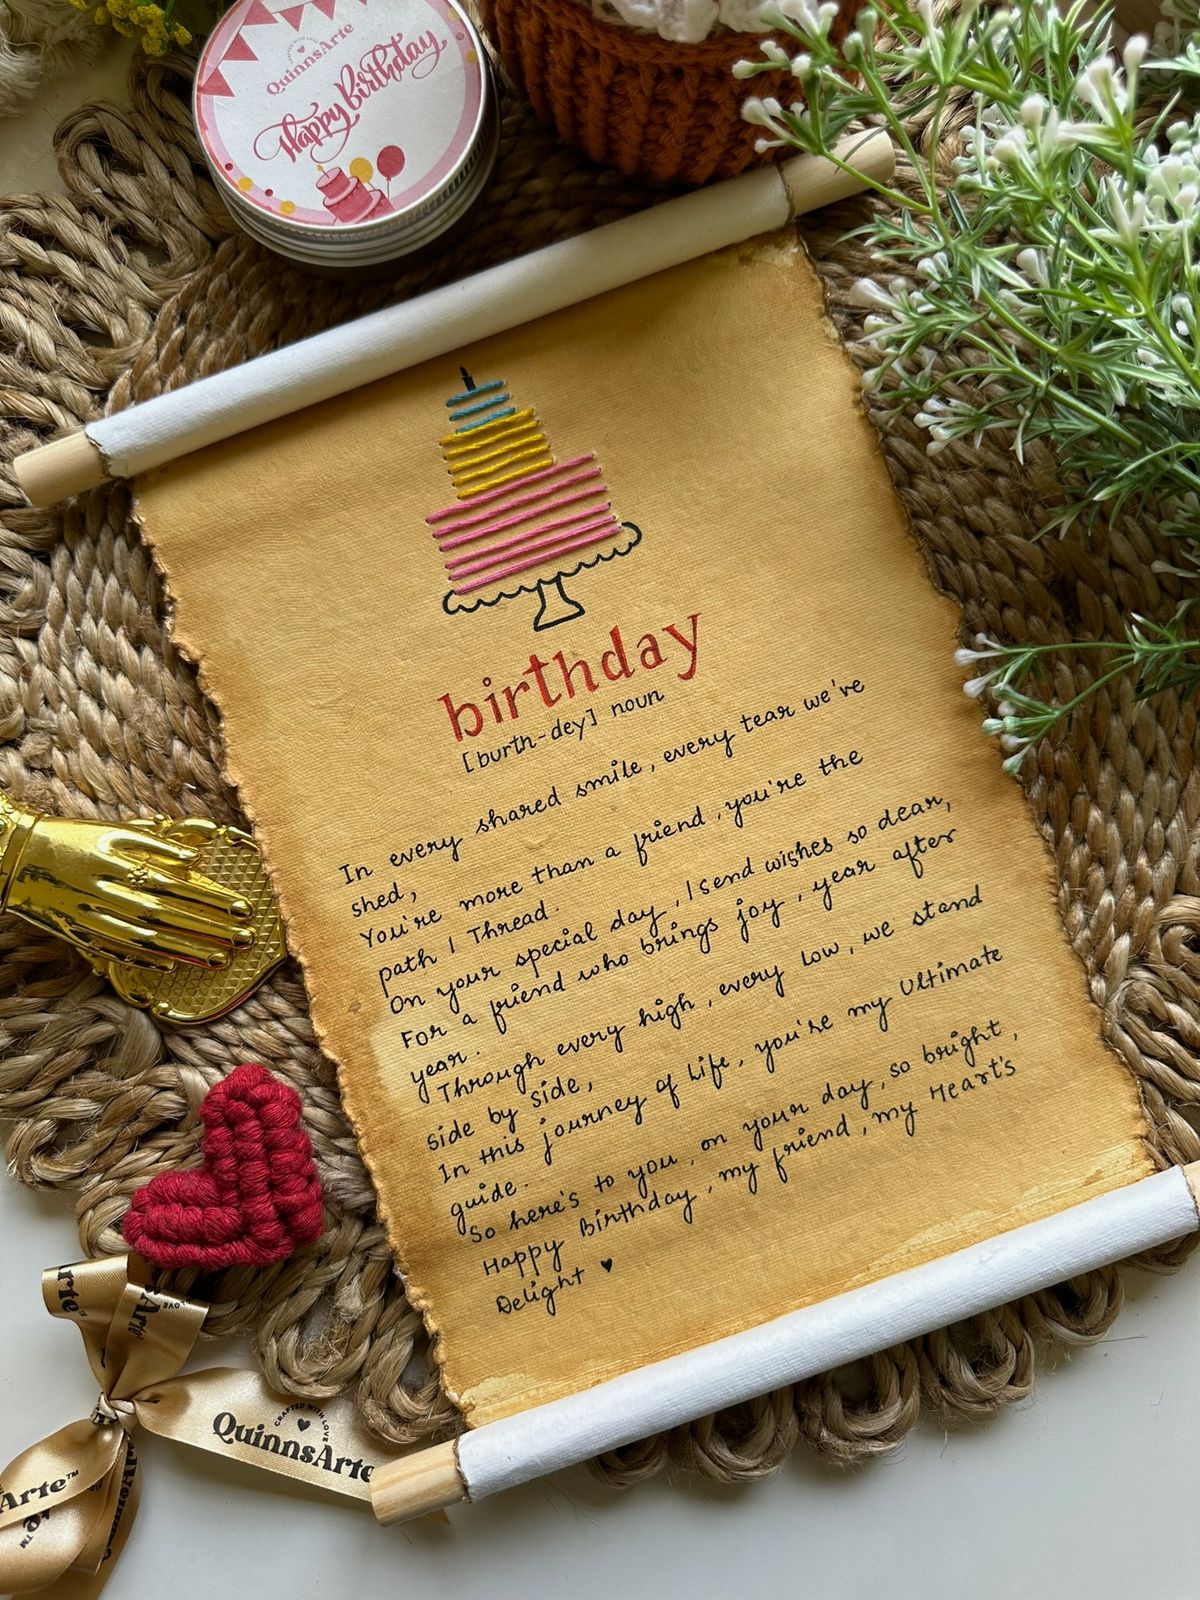 CRAFTED WITH LOVE
QuinnsArte
Happy Birthday
birthday
[burth-dey] noun
In every shared smile, every tear we've
shed,
You're more than a friend, you're the
path I Thread.
On your special day, I send wishes so dear,
For a friend who brings joy, year after
year.
Through every high, every low, we stand
side by side,
In this journey of Life, you're my Ultimate
guide.
So here's to you, on your day, so bright,
Happy Birthday, my friend, my Heart's
Delight ♥
rte™
Arte
LOVE
CRAFTED WITH LOVE
QuinnsArte
Arte™